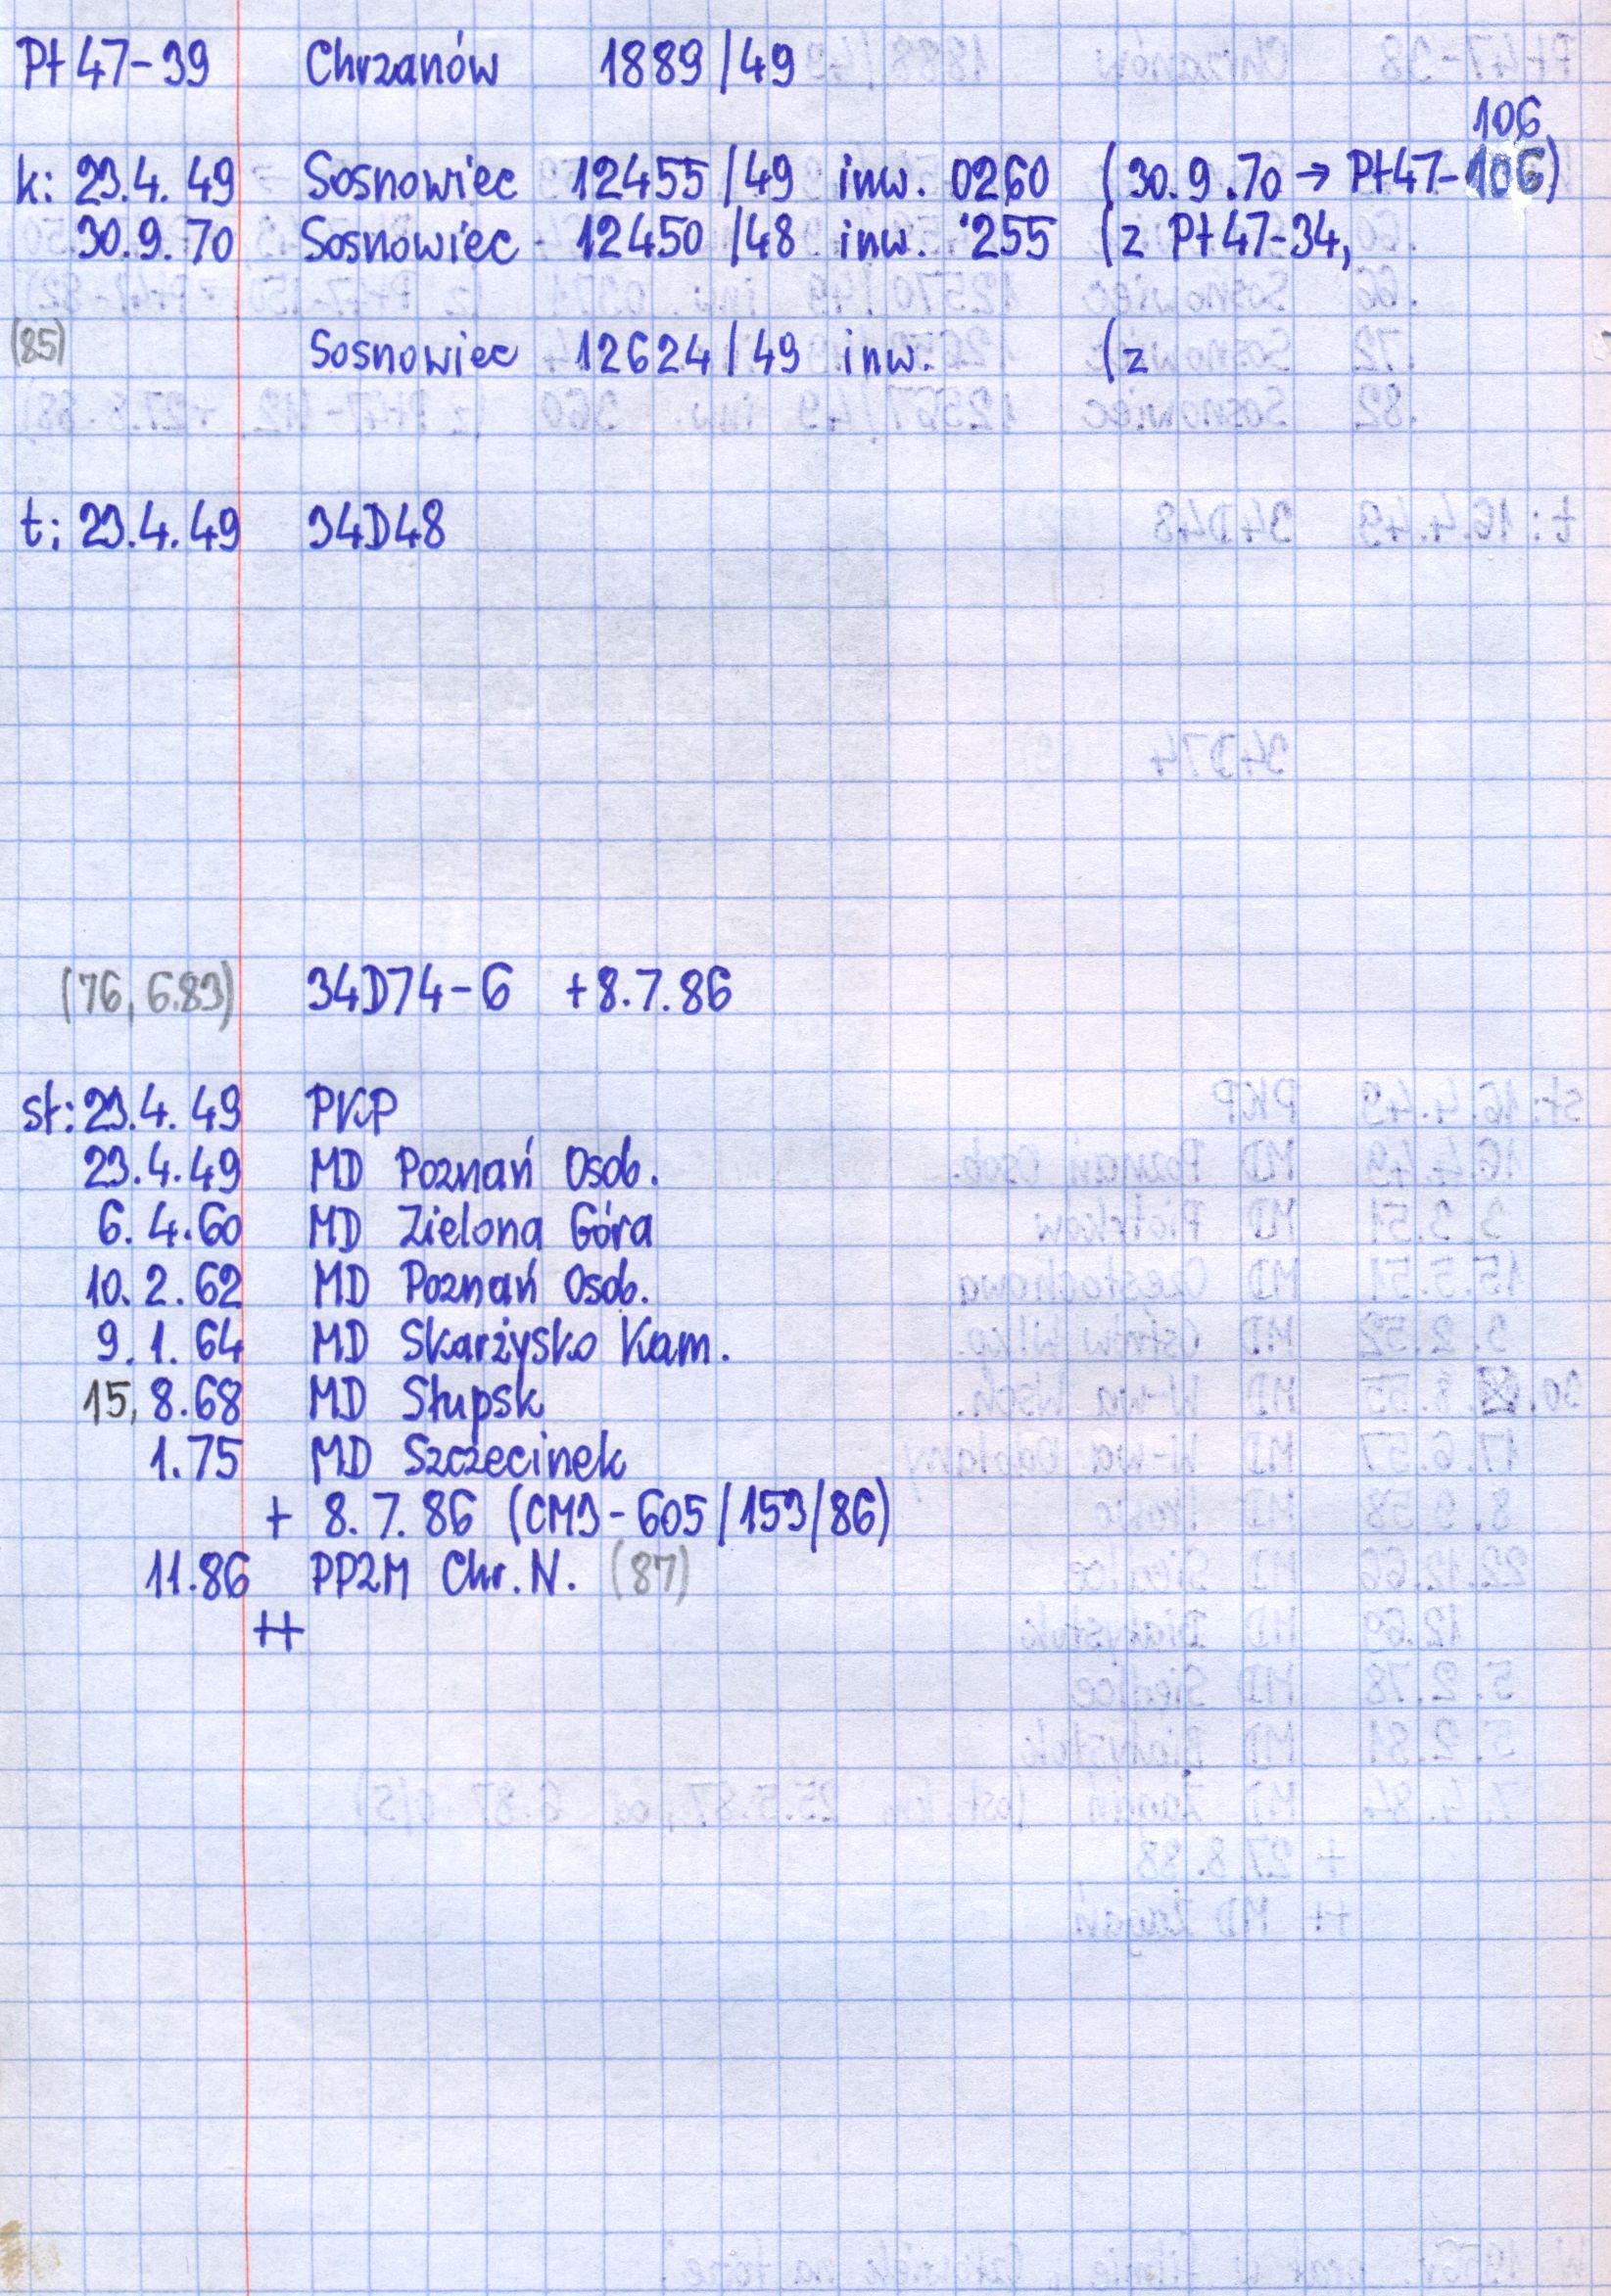 Pt47-39 Chrzanów 1889/49
106
k: 23.4.49 Sosnowiec 12455/49 inw. 0260 (30.9.70 → Pt47-106)
30.9.70 Sosnowiec 12450/48 inw. 255 (z Pt47-34,
(85) Sosnowiec 12624/49 inw. (z
t: 23.4.49 34D48
(76, 6.83) 34D74-6 +8.7.86
st: 23.4.49 PKP
23.4.49 MD Poznań Osob.
6.4.60 MD Zielona Góra
10.2.62 MD Poznań Osob.
9.1.64 MD Skarżysko Kam.
15,8.68 MD Słupsk
1.75 MD Szczecinek
+ 8.7.86 (CM3-605/153/86)
11.86 PPZM Chr. N. (87)
++